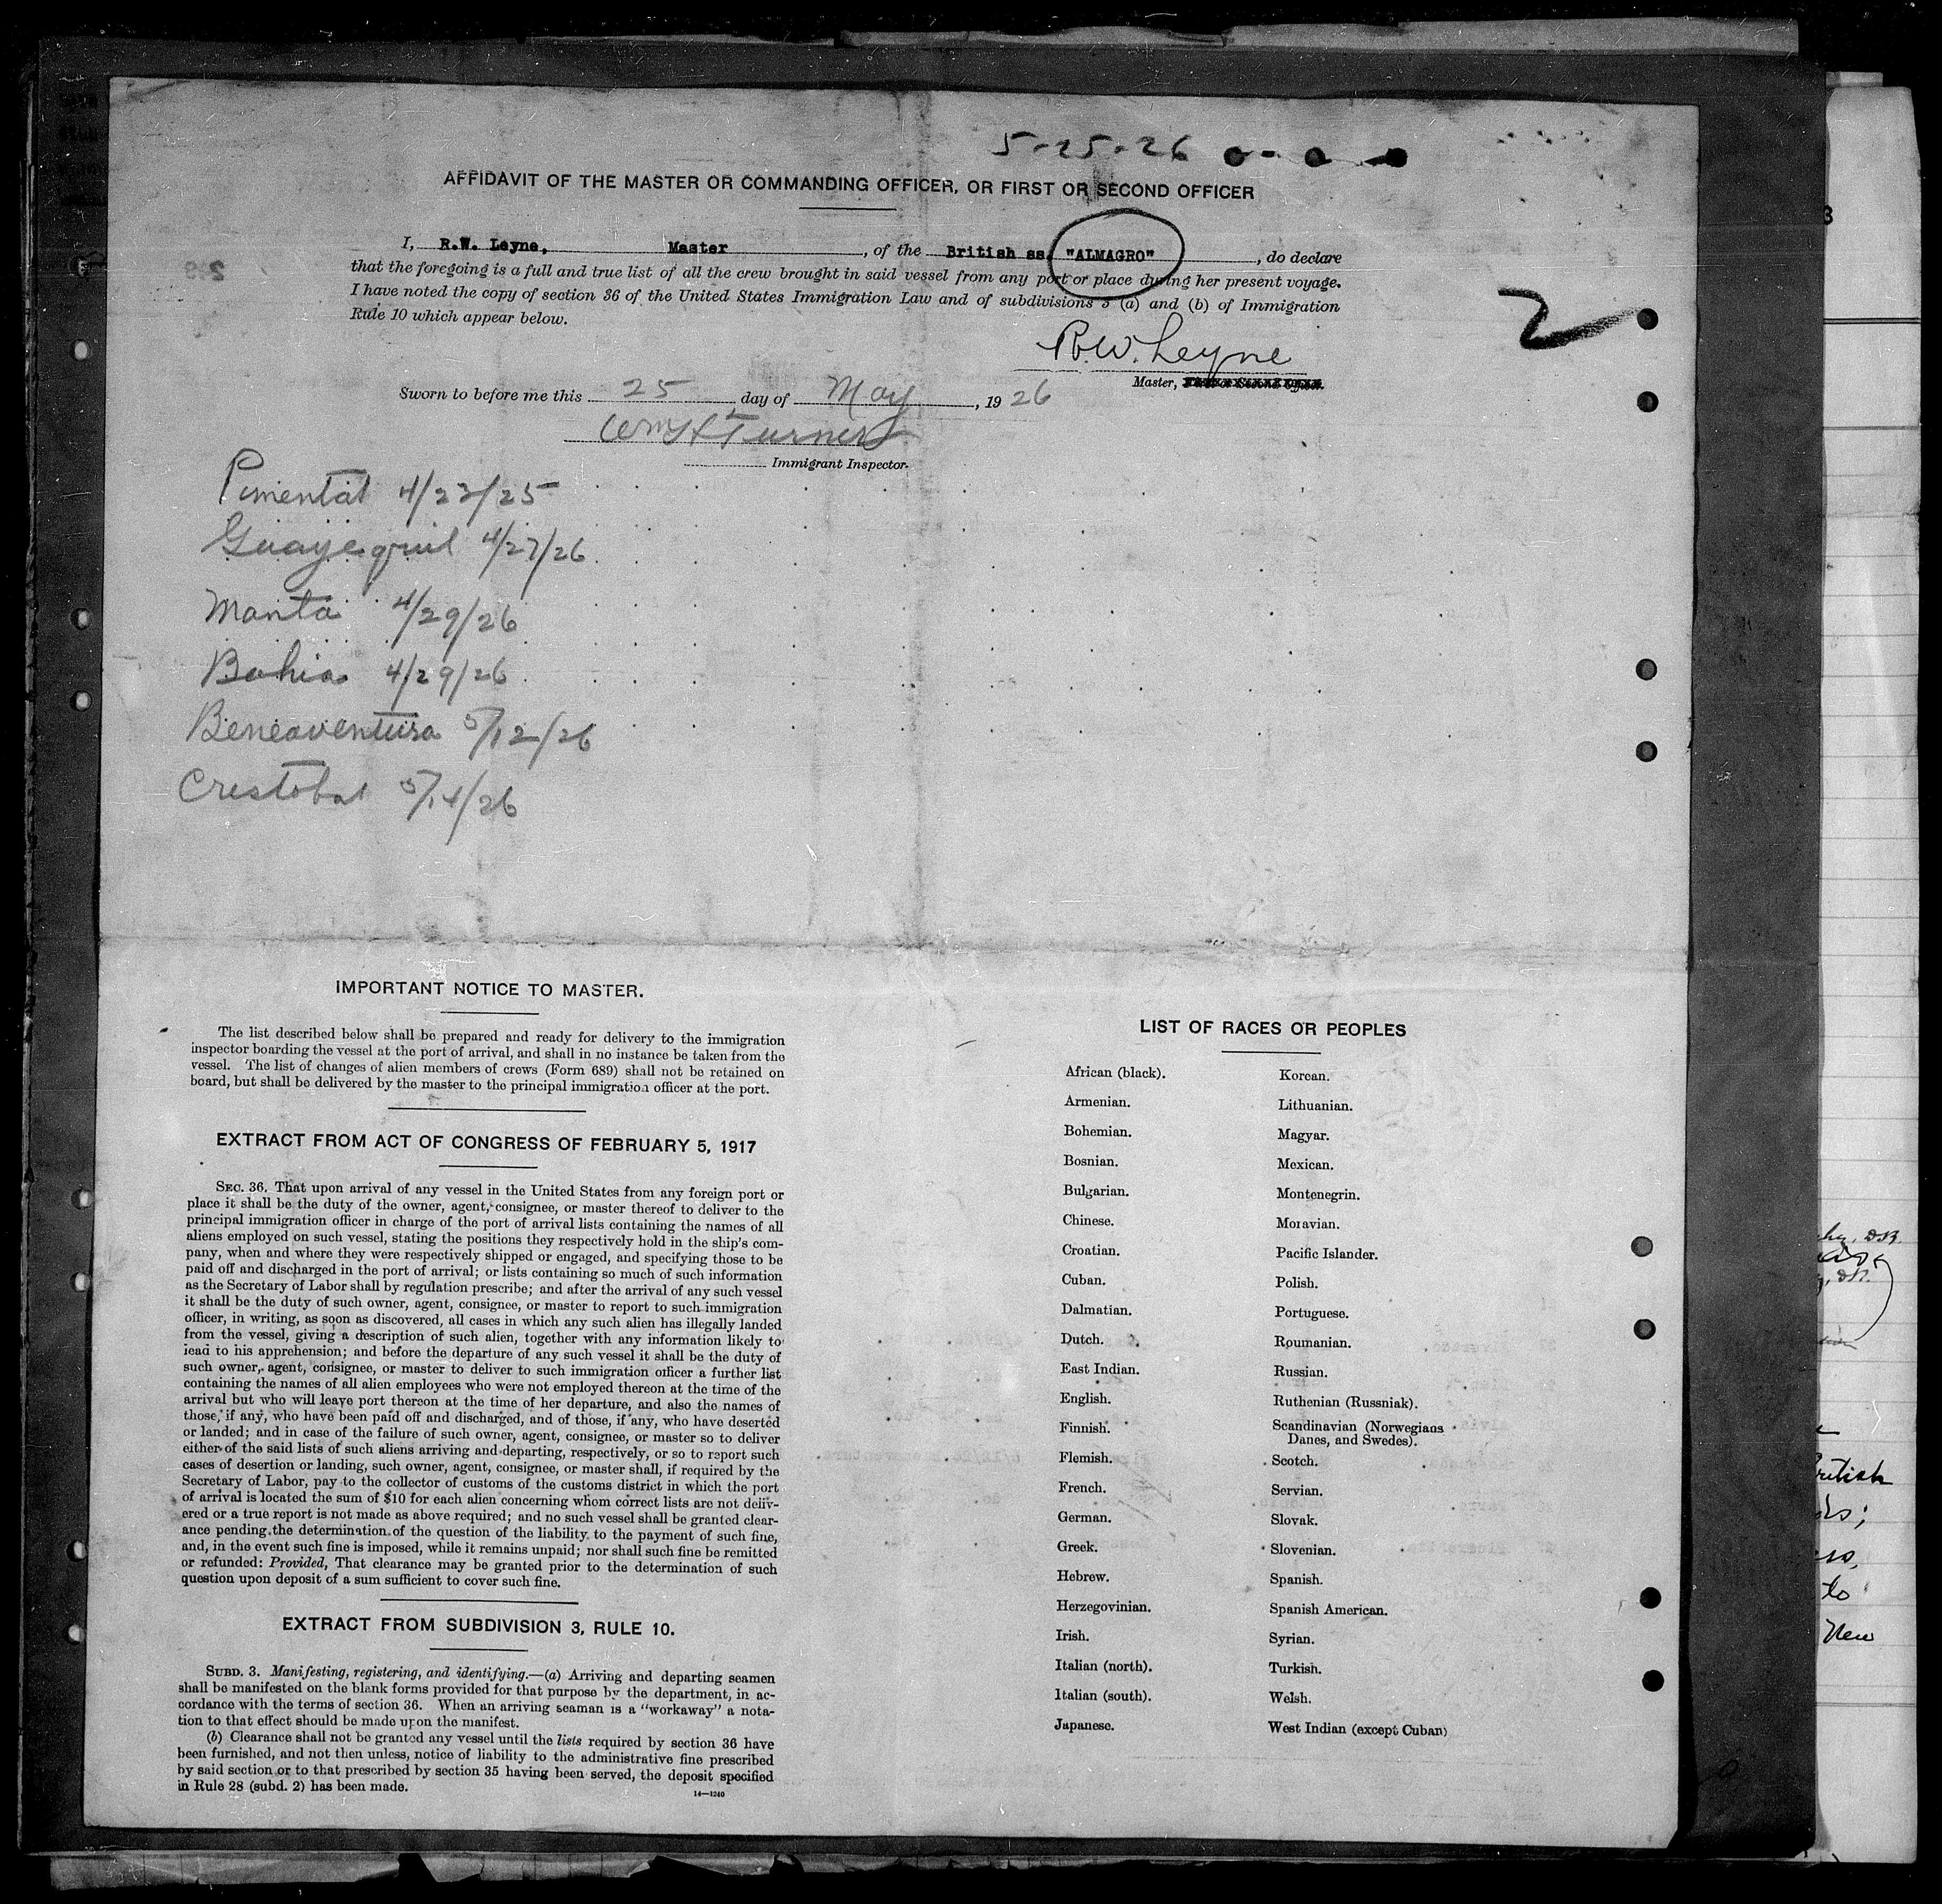 5-25-26
AFFIDAVIT OF THE MASTER OR COMMANDING OFFICER, OR FIRST OR SECOND OFFICER
I, R.W. Leyne, Master, of the British ss. "ALMAGRO", do declare
that the foregoing is a full and true list of all the crew brought in said vessel from any port or place during her present voyage.
I have noted the copy of section 36 of the United States Immigration Law and of subdivisions 3 (a) and (b) of Immigration
Rule 10 which appear below.
2
R.W. Leyne
Master,
Sworn to before me this 25 day of May, 19 26
Turner
Immigrant Inspector.
Pimental 4/23/25
Guayequil 4/27/26
Manta 4/29/26
Bahia 4/29/26
Beneaventura 5/12/26
Crestobal 5/14/26
IMPORTANT NOTICE TO MASTER.
The list described below shall be prepared and ready for delivery to the immigration
inspector boarding the vessel at the port of arrival, and shall in no instance be taken from the
vessel. The list of changes of alien members of crews (Form 689) shall not be retained on
board, but shall be delivered by the master to the principal immigration officer at the port.
EXTRACT FROM ACT OF CONGRESS OF FEBRUARY 5, 1917
SEC. 36. That upon arrival of any vessel in the United States from any foreign port or
place it shall be the duty of the owner, agent, consignee, or master thereof to deliver to the
principal immigration officer in charge of the port of arrival lists containing the names of all
aliens employed on such vessel, stating the positions they respectively hold in the ship's com-
pany, when and where they were respectively shipped or engaged, and specifying those to be
paid off and discharged in the port of arrival; or lists containing so much of such information
as the Secretary of Labor shall by regulation prescribe; and after the arrival of any such vessel
it shall be the duty of such owner, agent, consignee, or master to report to such immigration
officer, in writing, as soon as discovered, all cases in which any such alien has illegally landed
from the vessel, giving a description of such alien, together with any information likely to
lead to his apprehension; and before the departure of any such vessel it shall be the duty of
such owner, agent, consignee, or master to deliver to such immigration officer a further list
containing the names of all alien employees who were not employed thereon at the time of the
arrival but who will leave port thereon at the time of her departure, and also the names of
those, if any, who have been paid off and discharged, and of those, if any, who have deserted
or landed; and in case of the failure of such owner, agent, consignee, or master so to deliver
either of the said lists of such aliens arriving and departing, respectively, or so to report such
cases of desertion or landing, such owner, agent, consignee, or master shall, if required by the
Secretary of Labor, pay to the collector of customs of the customs district in which the port
of arrival is located the sum of $10 for each alien concerning whom correct lists are not deliv-
ered or a true report is not made as above required; and no such vessel shall be granted clear-
ance pending the determination of the question of the liability to the payment of such fine,
and, in the event such fine is imposed, while it remains unpaid; nor shall such fine be remitted
or refunded: Provided, That clearance may be granted prior to the determination of such
question upon deposit of a sum sufficient to cover such fine.
EXTRACT FROM SUBDIVISION 3, RULE 10.
SUBD. 3. Manifesting, registering, and identifying.—(a) Arriving and departing seamen
shall be manifested on the blank forms provided for that purpose by the department, in ac-
cordance with the terms of section 36. When an arriving seaman is a "workaway" a nota-
tion to that effect should be made upon the manifest.
(b) Clearance shall not be granted any vessel until the lists required by section 36 have
been furnished, and not then unless, notice of liability to the administrative fine prescribed
by said section or to that prescribed by section 35 having been served, the deposit specified
in Rule 28 (subd. 2) has been made.
14—1240
LIST OF RACES OR PEOPLES
African (black).
Armenian.
Bohemian.
Bosnian.
Bulgarian.
Chinese.
Croatian.
Cuban.
Dalmatian.
Dutch.
East Indian.
English.
Finnish.
Flemish.
French.
German.
Greek.
Hebrew.
Herzegovinian.
Irish.
Italian (north).
Italian (south).
Japanese.
Korean.
Lithuanian.
Magyar.
Mexican.
Montenegrin.
Moravian.
Pacific Islander.
Polish.
Portuguese.
Roumanian.
Russian.
Ruthenian (Russniak).
Scandinavian (Norwegians
Danes, and Swedes).
Scotch.
Servian.
Slovak.
Slovenian.
Spanish.
Spanish American.
Syrian.
Turkish.
Welsh.
West Indian (except Cuban)
to
New